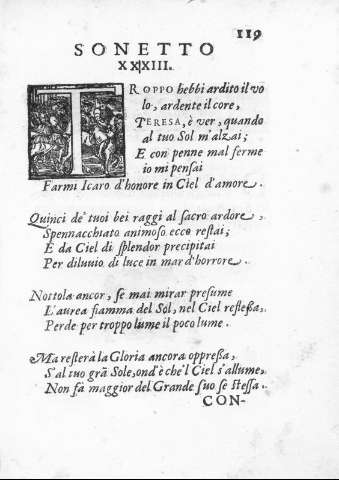 119
SONETTO
XXXIII.
TROPPO hebbi ardito il vo
lo, ardente il core,
TERESA, è ver, quando
al tuo Sol m'alzai;
E con penne mal ferme
io mi pensai
Farmi Icaro d'honore in Ciel d'amore.
Quinci de' tuoi bei raggi al sacro ardore,
Spennacchiato animoso ecco restai;
E da Ciel di splendor precipitai
Per diluuio di luce in mar d'horrore.
Nottola ancor, se mai mirar presume
L'aurea fiamma del Sol, nel Ciel reſteßa,
Perde per troppo lume il poco lume.
Ma resterà la Gloria ancora oppreßa,
S'al tuo grã Sole, ond'è che'l Ciel s'allume,
Non fà maggior del Grande suo se stessa.
CON-